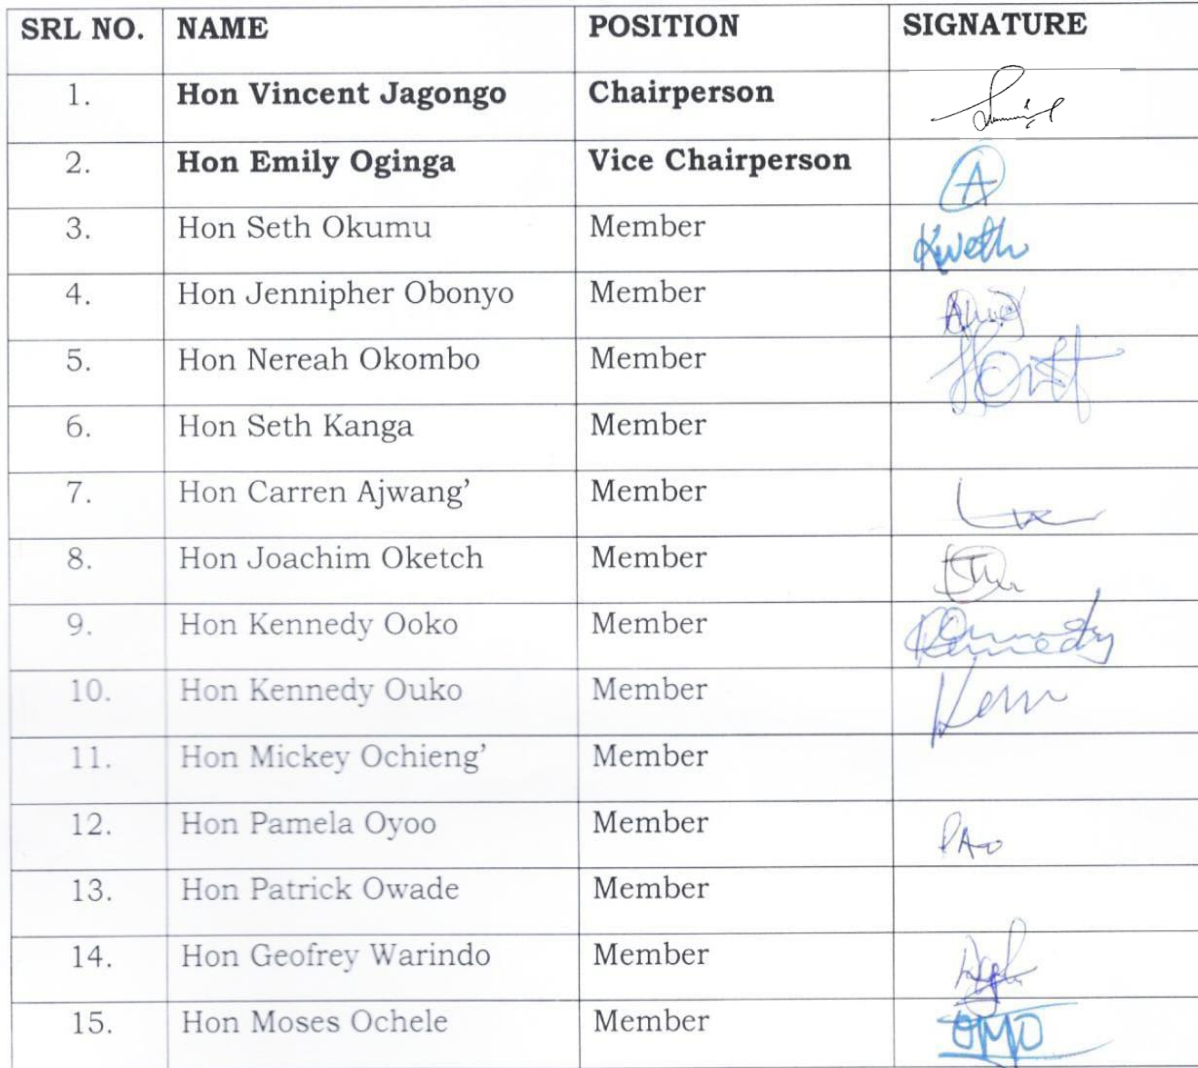 SRL NO. NAME POSITION SIGNATURE
1. Hon Vincent Jagongo Chairperson
2. Hon Emily Oginga Vice Chairperson
3. Hon Seth Okumu Member Kweth
4. Hon Jennipher Obonyo Member
5. Hon Nereah Okombo Member
6. Hon Seth Kanga Member
7. Hon Carren Ajwang’ Member
8. Hon Joachim Oketch Member
9. Hon Kennedy Ooko Member Kennedy
10. Hon Kennedy Ouko Member
11. Hon Mickey Ochieng’ Member
12. Hon Pamela Oyoo Member PAO
13. Hon Patrick Owade Member
14. Hon Geofrey Warindo Member
15. Hon Moses Ochele Member